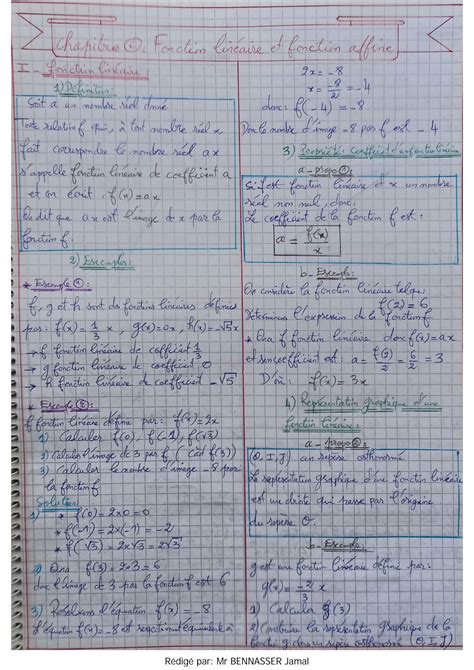 Chapitre ①: Fonction linéaire et fonction affine
I - Fonction linéaire:
1) Définition:
Soit a un nombre réel donné
Toute relation f qui, à tout nombre réel x
fait correspondre le nombre réel ax
s'appelle fonction linéaire de coefficient a
et on écrit: f(x)=ax
On dit que ax est l'image de x par la
fonction f.
2) Exemples:
* Exemple ①:
f, g et h sont des fonctions linéaires définies
par: f(x) = 1/3 x, g(x)=0x, h(x)=-√5x
→ f fonction linéaire de coefficient 1/3
→ g fonction linéaire de coefficient 0
→ h fonction linéaire de coefficient -√5
* Exemple ②:
f fonction linéaire définie par: f(x)=2x
1) Calculer f(0), f(-1), f(√3)
2) Calculer l'image de 3 par f (càd f(3))
3) Calculer le nombre d'image -8 par
la fonction f
Solution:
1) * f(0) = 2x0 = 0
* f(-1) = 2x(-1) = -2
* f(√3) = 2x√3 = 2√3
2) Ona f(3) = 2x3 = 6
donc l'image de 3 par la fonction f est 6
3) Résolvons l'équation f(x) = -8
L'équation f(x) = -8 est équivalente à
2x = -8
x = -8/2 = -4
donc: f(-4) = -8
Donc le nombre d'image -8 par f est -4
3) Propriété: coefficient d'une fonction linéaire
a - propo ①:
Si f est fonction linéaire et x un nombre
réel non nul, donc:
Le coefficient de la fonction f est:
a = f(x)/x
b - Exemple:
On considère la fonction linéaire telque:
f(2) = 6
Déterminons l'expression de la fonction f
* Ona f fonction linéaire donc f(x)=ax
et son coefficient est: a = f(2)/2 = 6/2 = 3
D'où: f(x) = 3x
4) Représentation graphique d'une
fonction linéaire:
a - Propo ②:
(O, I, J) un repère orthonormé
La représentation graphique d'une fonction linéaire
est une droite qui passe par l'origine
du repère O.
b - Exemple:
g est une fonction linéaire définie par:
g(x) = -2/3 x
1) Calculer g(3)
2) Construire la représentation graphique de la
fonction g dans un repère orthonormé (O, I, J)
Rédigé par: Mr BENNASSER Jamal